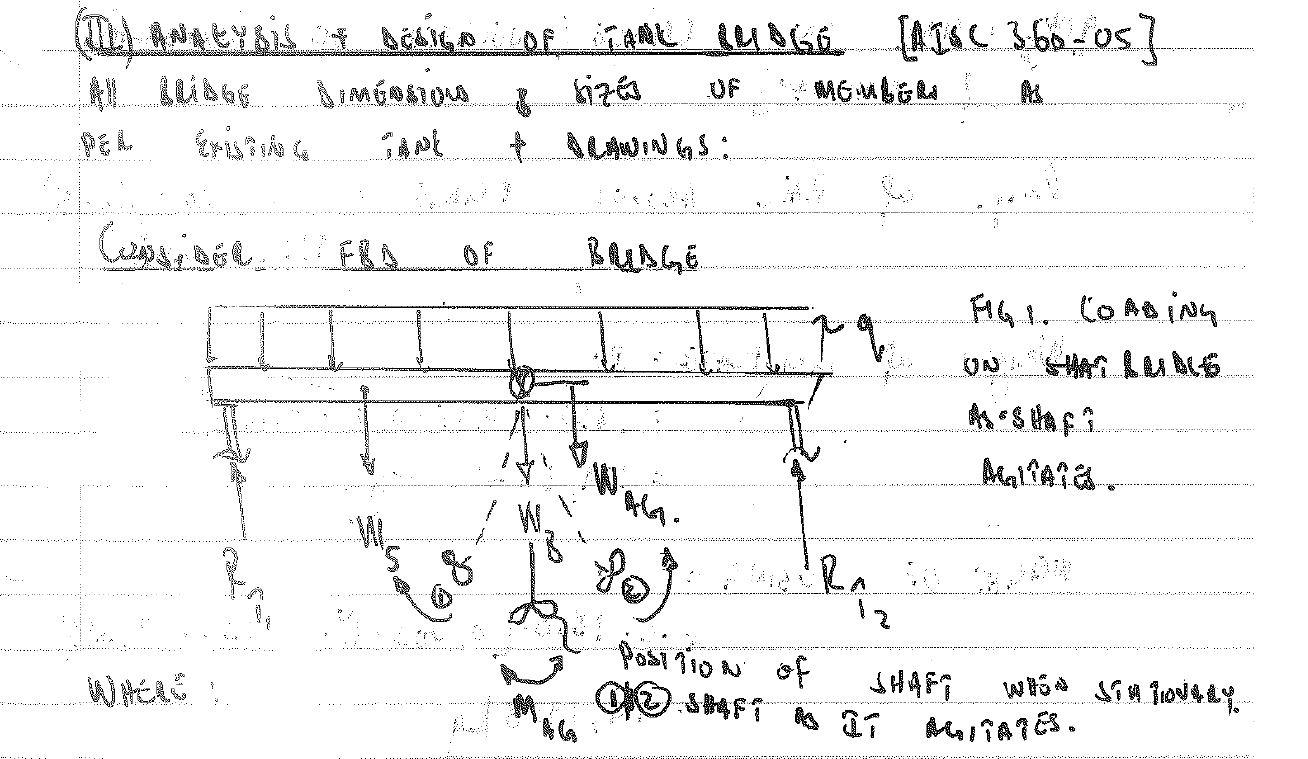 (III) ANALYSIS + DESIGN OF TANK BRIDGE [AISC 360-05]
All BRIDGE DIMENSIONS & SIZES OF MEMBERS AS
PER EXISTING TANK + DRAWINGS:
CONSIDER FBD OF BRIDGE
q
FIG 1. LOADING
ON SHAT BRIDGE
AS SHAFT
AGITATES.
W_AG.
W_S
W_B
R_T1
R_T2
① ②
M_AG
POSITION OF SHAFT WHEN STATIONARY.
①/② SHAFT AS IT AGITATES.
WHERE: